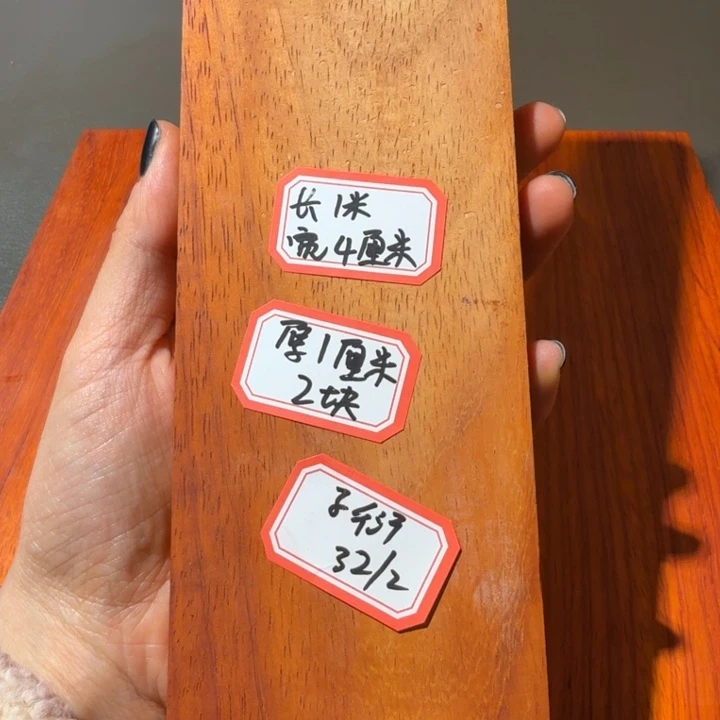 长1米
宽4厘米
厚1厘米
2块
子衍
32/2